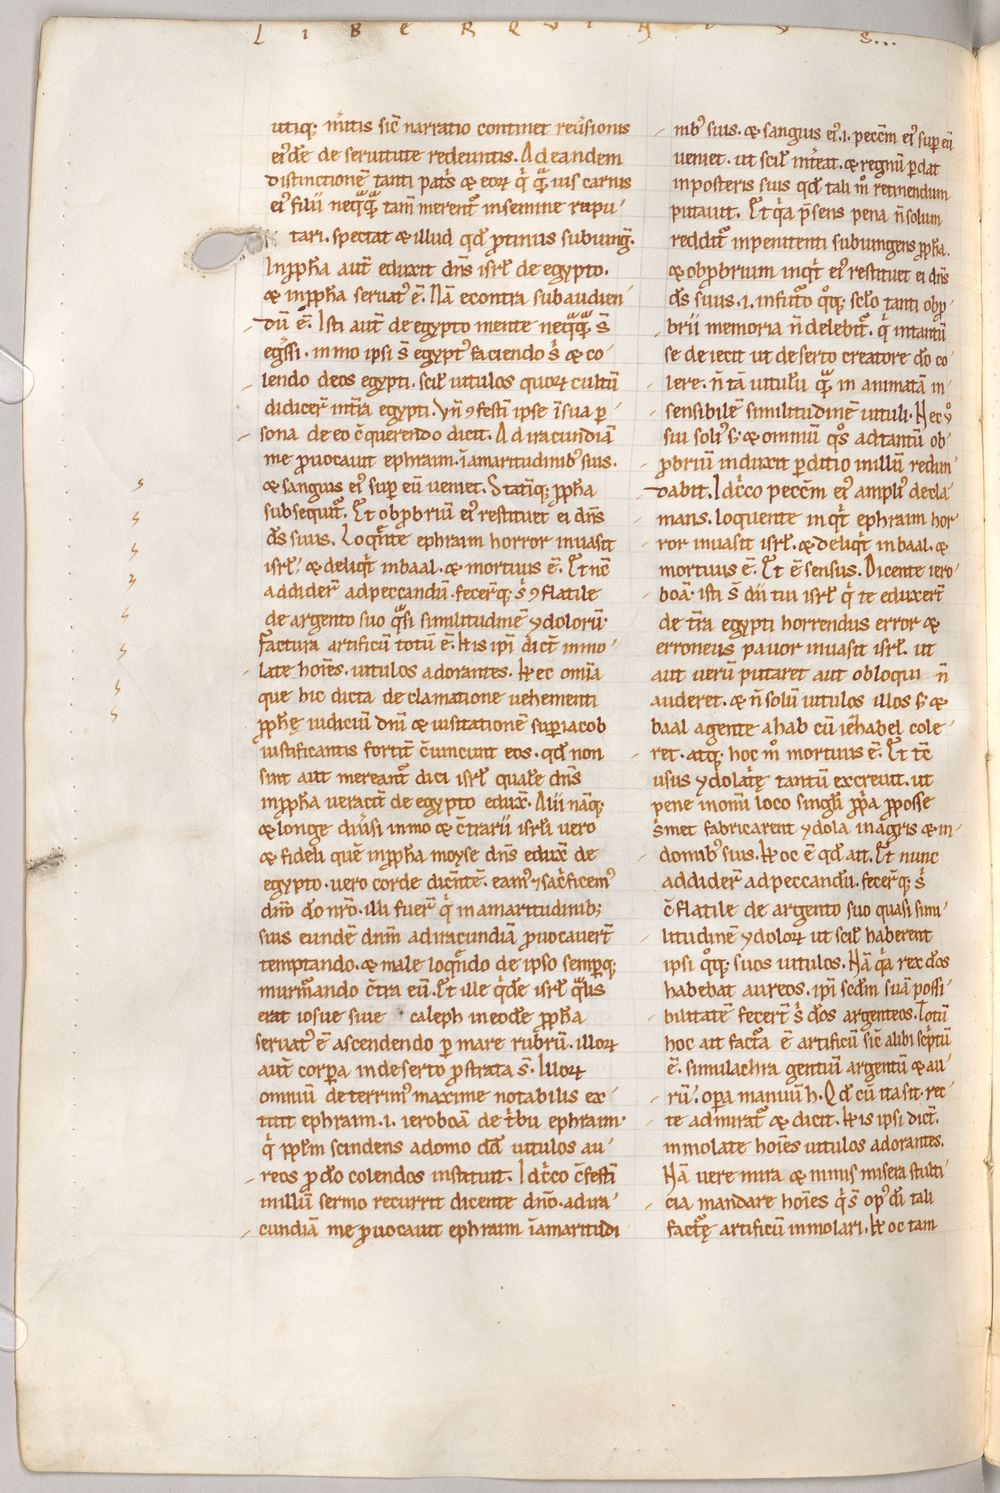 LIBER QVINTVS...
utiq; mittis sic̄ narratio continet reuͥsionis
ei᾽ de͞ de seruitute redeuntis. Ad eandem
distinctionē tanti patͥs & eoꝝ qͥ q̄ꝗ̄ uis carnis
ei᾽ filii neq̄ꝗ̄ tam̄ merent᷑ in semine repu-
tari. spectat & illud qd̄ ꝓtinus subiung̅.
In ꝓph̄a aut̄ eduxit dn̄s isrl̄ de egypto.
& in ꝓph̄a seruat᾽ ē. Nā econtra subaudien-
dū ē. Isti aut̄ de egypto mente neq̄ꝗ̄ s̄
eg̅ssi. immo ipsi s̄ egypt᾽ faciendo sͥ & co-
lendo deos egypti. scil̄ uitulos quoꝝ cultū
didicer̄ in tr̄a egypti. Vn̄ ꝯfestī ipse ī sua ꝑ-
sona de eo c̄querendo dicit. Ad iracundiā
me ꝓuocauit ephraim. ī amaritudinib᾽ suis.
& sanguis ei᾽ sup eū ueniet. Statīq; ꝓph̄a
subsequit᷑. Et obꝓbriū ei᾽ restituet ei dn̄s
ds̄ suus. Loqn̄te ephraim horror inuasit
isrl̄. & deliqͥt in baal. & mortuus ē. Et nc̄
addider̄ ad peccandū. fecer̄q; sͥ ꝯflatile
de argento suo qͣsi similitudinē ydolorū.
factura artificū totū ē. His ipī dict̄ immo-
late hoīes. uitulos adorantes. Hec omīa
que hic dicta declamatione uehementi
ꝓph̄ę iudiciū dn̄i & uisitationē sup iacob
iustificantis fortit̄ c̄uincunt eos. qd̄ non
sint aut mereant᷑ dici isrl̄ quale᷑ dn̄s
in ꝓph̄a ueracit̄ de egypto edux̄. Alii nāq;
& longe diūsi immo & c̄trarii isrl̄i uero
& fideli quē in ꝓph̄a moyse dn̄s edux̄ de
egypto. uero corde dicn̄tē. eam᾽ & sacͥficem᾽
dn̄o dō nr̄o. illi fuer̄ qͥ in amaritudinib;
suis eundē dnm̄ ad iracundiā ꝓuocauer̄t
temptando. & male loqn̄do de ipso semꝑq;
murmͣando c̄tra eū. Et ille qͥde isrl̄ qͣlis
erat iosue siue caleph in eode ꝓph̄a
seruat᾽ ē ascendendo ꝑ mare rubrū. illoꝝ
aut̄ corꝑa in deserto ꝓstrata s̄. Illoꝝ
omniū deterrim᾽ maxime notabilis ex-
titit ephraim .i. ieroboā de tͥbu ephraim.
qͥ pp̄lm scindens a domo dd̄ uitulos au-
reos ꝓ dō colendos instituit. Idcͥco c̄festī
in illū sermo recurrit dicente dn̄o. ad ira-
cundiā me ꝓuocauit ephraim ī amaritudi-
nib᾽ suis. & sanguis ei᾽ .i. peccm̄ ei᾽ sup eū
ueniet. ut scil̄ int̄eat. & regnū ꝑdat
in posteris suis qd̄ tali mͦ retinendum
putauit. Et qͥa p̄sens pena n̄ solum
reddit᷑ inpenitenti subiungens ꝓph̄a.
& obꝓbrium inqͥt ei᾽ restituet ei dn̄s
ds̄ suus .i. in futͦo qͦq; sclo̅ tanti obꝓ-
brii memoria n̄ delebit᷑. qͥ in tantū
se deiecit ut deserto creatore dō co-
lere. n̄ tā uitulū qͣ in animatā in-
sensibilē similitudinē uituli. Hec uͦ
sui soli᾽ s; & omniū qͦs ad tantū ob-
ꝓbriū induxit ꝑditio in illū redun-
dabit. Idcͥco peccm̄ ei᾽ ampli᾽ decla-
mans. loquente inqͥt ephraim hor-
ror inuasit isrl̄. & deliqͥt in baal. &
mortuus ē. Et ē sensus. Dicente iero-
boā. isti s̄ dii tui isrl̄ qͥ te eduxer̄t
de tr̄a egypti horrendus error &
erroneus pauor inuasit isrl̄. ut
aut uerū putaret aut obloqui n̄
auderet. & n̄ solū uitulos illos s; &
baal agente ahab cū iezabel cole-
ret. atq; hoc mͦ mortuus ē. Et tc̄
usus ydolatͥę tantū excreuit. ut
pene in omni loco singli̅ ꝓpͥa ꝓ posse
sͥmet fabricarent ydola in agris & in
domib᾽ suis. Hoc ē qd̄ ait. Et nunc
addider̄ ad peccandū. fecer̄q; sͥ
c̄flatile de argento suo quasi simi-
litudinē ydoloꝝ ut scil̄ haberent
ipsi qͦq; suos uitulos. Nā qͥa rex dōs
habebat aureos. ipī scdm̄ suā possi-
bilitatē fecer̄t sͥ dōs argenteos. Totū
hoc ait fact̄a ē artificū sic̄ alibi scͥptū
ē. simulachra gentiū argentū & au-
rū. oꝑa manuū h. Qd̄ cū ita sit. rec-
te admirat᷑ & dicit. His ipsi dict̄.
immolate hoīes uitulos adorantes.
Nā uere mira & nimis misera stulti-
cia mandare hoīes qͥ s̄ op᾽ dī tali
factͣę artificū immolari. Hoc tam